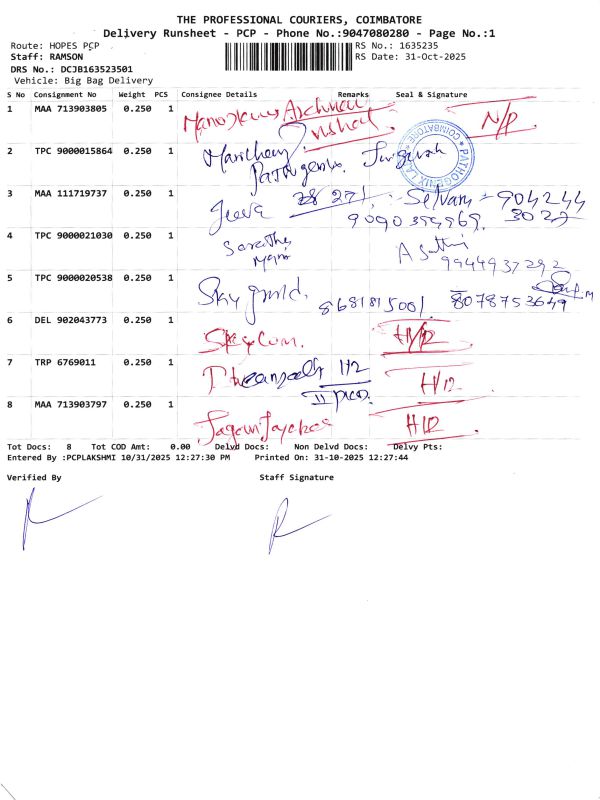 THE PROFESSIONAL COURIERS, COIMBATORE
Delivery Runsheet - PCP - Phone No.:9047080280 - Page No.:1
Route: HOPES PCP
RS No.: 1635235
Staff: RAMSON
RS Date: 31-Oct-2025
DRS No.: DCJB163523501
Vehicle: Big Bag Delivery
S No Consignment No Weight PCS Consignee Details Remarks Seal & Signature
1 MAA 713903805 0.250 1
N/P
2 TPC 9000015864 0.250 1
PATHOGENIX LA
COIMBATORE
3 MAA 111719737 0.250 1 Jeeva 271. Selvam - 904244
9090394969. 3027
4 TPC 9000021030 0.250 1
9944937292
5 TPC 9000020538 0.250 1 Sky 8681815001. 8078753649
6 DEL 902043773 0.250 1 H/12
7 TRP 6769011 0.250 1 H2 H/12
8 MAA 713903797 0.250 1 H12
Tot Docs: 8 Tot COD Amt: 0.00 Delvd Docs: Non Delvd Docs: Delvy Pts:
Entered By :PCPLAKSHMI 10/31/2025 12:27:30 PM Printed On: 31-10-2025 12:27:44
Verified By Staff Signature